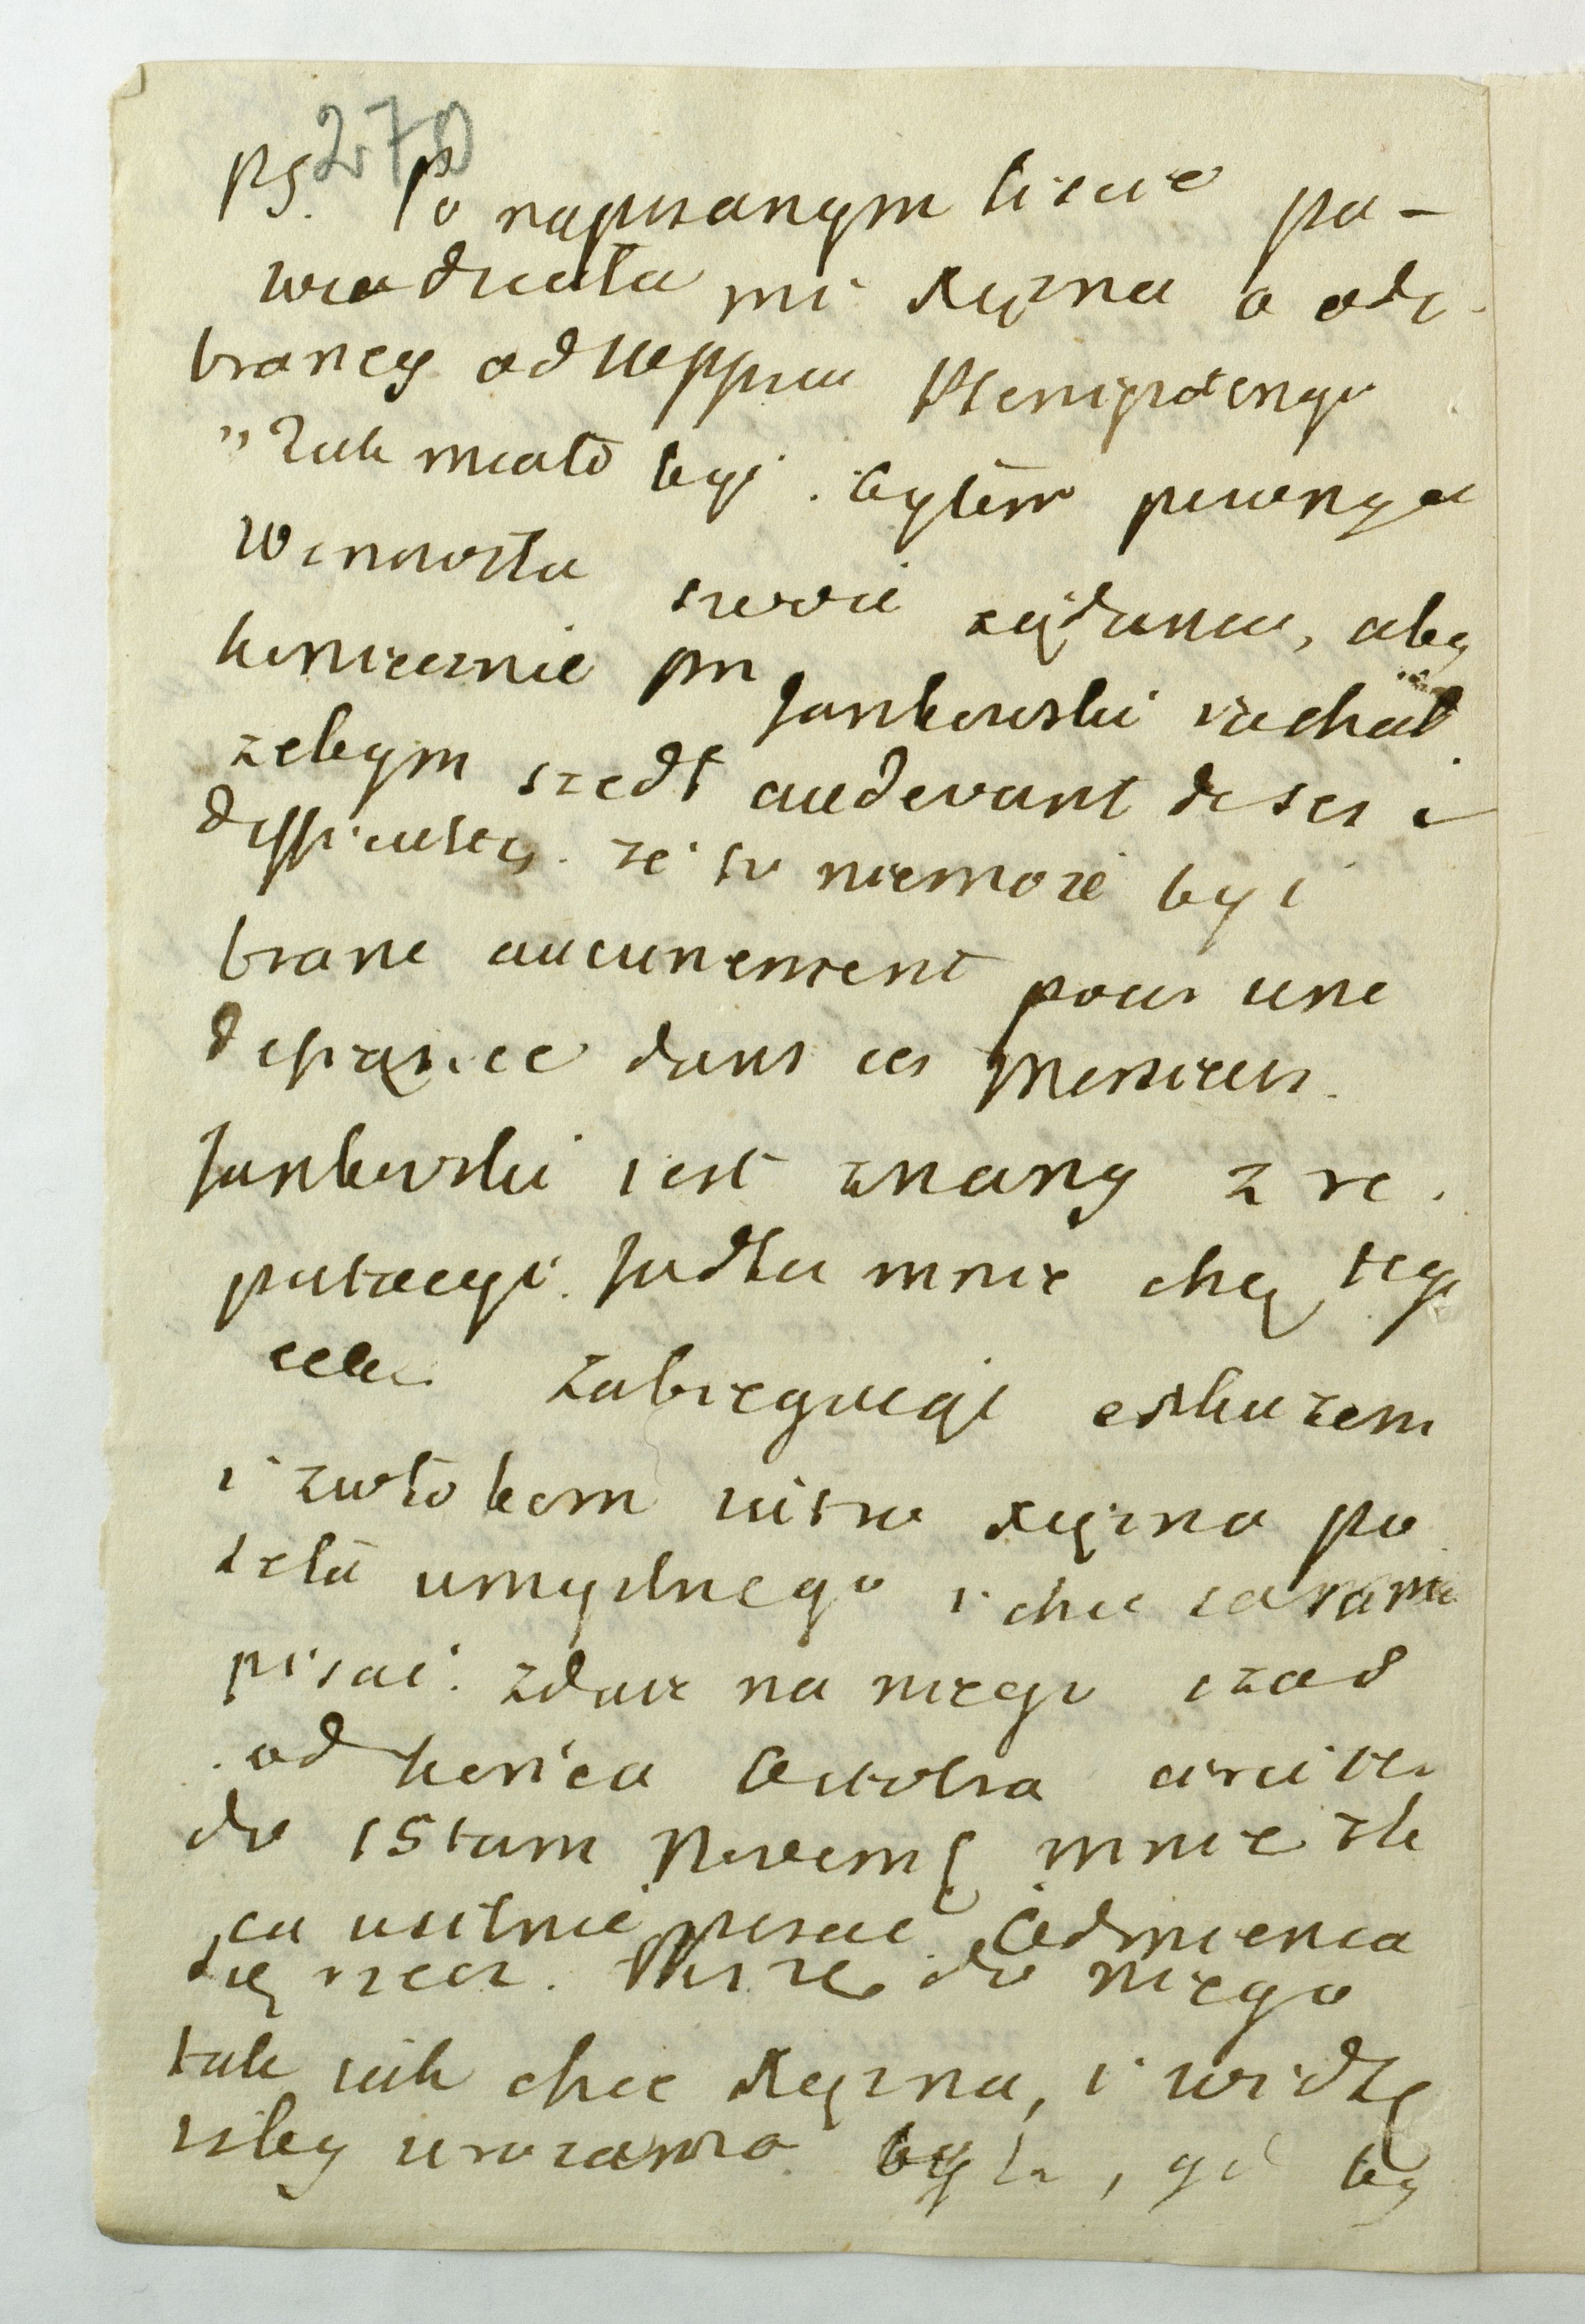 270
PS. Po napisanym liscie po-
wiadziała mi Xiężna o ode-
braney od Ple­nipotenga
"Jak miało być. byłem pewny a
wniosła swoie żądania, aby
koniecznie pn Jankowski iachał
zebym szedł audevant de ses
difficultes. że to niemoże być
brane aucunement pour une
defiance dans ces Messieurs.
Jankowski iest znany z re-
putacyi. Jadła mnie chęć tego
celu zabiegaiąc
i zwłokom iutro Xiężna po
syła umyslnego i chce sama
pisać. zdaie na niego
od końca Octobra
do 15tam Novemb mnie zle
ca usilnie pisać. Odmienia
się rzecz. Pisze do niego
tak iak chce Xiężna, i widzę
iżby urazona była, gd by